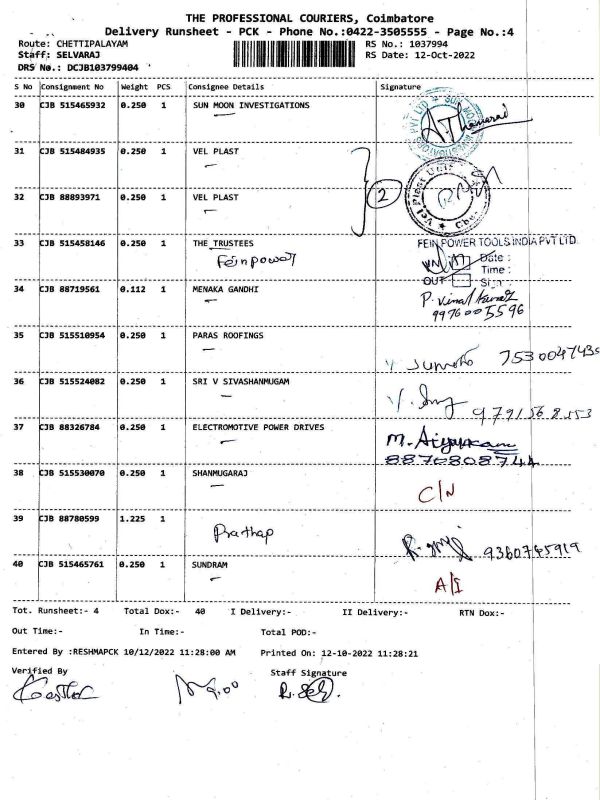 THE PROFESSIONAL COURIERS, Coimbatore
Delivery Runsheet - PCK - Phone No.:0422-3505555 - Page No.:4
Route: CHETTIPALAYAM RS No.: 1037994
Staff: SELVARAJ RS Date: 12-Oct-2022
DRS No.: DCJB103799404
S No Consignment No Weight PCS Consignee Details Signature
30 CJB 515465932 0.250 1 SUN MOON INVESTIGATIONS
31 CJB 515484935 0.250 1 VEL PLAST
2
32 CJB 88893971 0.250 1 VEL PLAST
33 CJB 515458146 0.250 1 THE TRUSTEES FEIN POWER TOOLS INDIA PVT LTD
Feinpower Date :
Time :
OUT Sign
34 CJB 88719561 0.112 1 MENAKA GANDHI
9976005596
35 CJB 515510954 0.250 1 PARAS ROOFINGS
36 CJB 515524082 0.250 1 SRI V SIVASHANMUGAM
37 CJB 88326784 0.250 1 ELECTROMOTIVE POWER DRIVES
38 CJB 515530070 0.250 1 SHANMUGARAJ
C/N
39 CJB 88780599 1.225 1
Prathap 9360745919
40 CJB 515465761 0.250 1 SUNDRAM
A/I
Tot. Runsheet:- 4 Total Dox:- 40 I Delivery:- II Delivery:- RTN Dox:-
Out Time:- In Time:- Total POD:-
Entered By :RESHMAPCK 10/12/2022 11:28:00 AM Printed On: 12-10-2022 11:28:21
Verified By Staff Signature